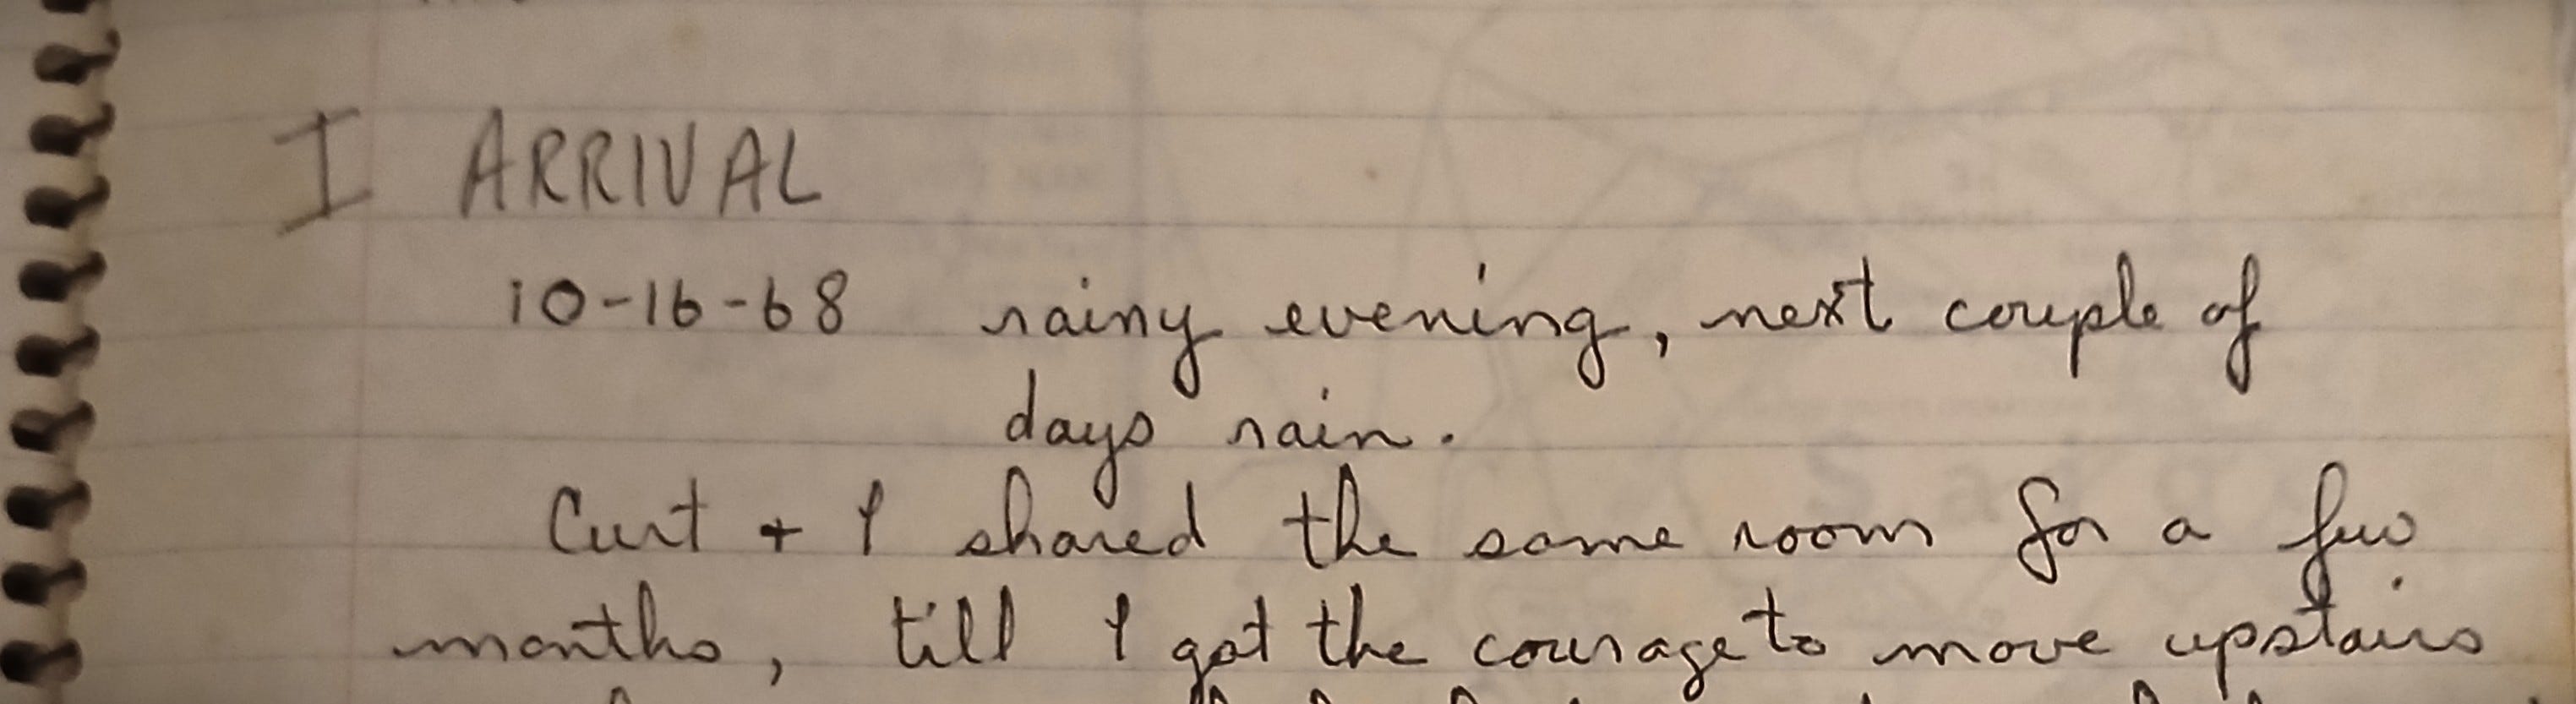 I ARRIVAL
10-16-68 rainy evening, next couple of
days rain.
Curt + I shared the same room for a few
months, till I got the courage to move upstairs